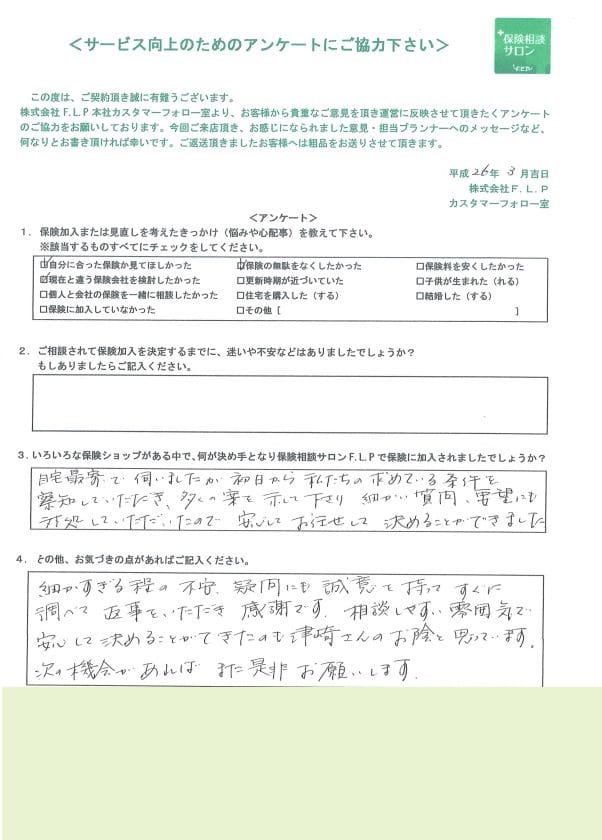 ＜サービス向上のためのアンケートにご協力下さい＞
保険相談
サロン
F.L.P
この度は、ご契約頂き誠に有難うございます。
株式会社F.L.P本社カスタマーフォロー室より、お客様から貴重なご意見を頂き運営に反映させて頂きたくアンケート
のご協力をお願いしております。今回ご来店頂き、お感じになられました意見・担当プランナーへのメッセージなど、
何なりとお書き頂ければ幸いです。ご返送頂きましたお客様へは粗品をお送りさせて頂きます。
平成26年3月吉日
株式会社F.L.P
カスタマーフォロー室
＜アンケート＞
1. 保険加入または見直しを考えたきっかけ（悩みや心配事）を教えて下さい。
※該当するものすべてにチェックをしてください。
☑自分に合った保険か見てほしかった ☑保険の無駄をなくしたかった □保険料を安くしたかった
☑現在と違う保険会社を検討したかった □更新時期が近づいていた □子供が生まれた（れる）
□個人と会社の保険を一緒に相談したかった □住宅を購入した（する） □結婚した（する）
□保険に加入していなかった □その他［ ］
2. ご相談されて保険加入を決定するまでに、迷いや不安などはありましたでしょうか？
もしありましたらご記入ください。
3. いろいろな保険ショップがある中で、何が決め手となり保険相談サロンF.L.Pで保険に加入されましたでしょうか？
自宅最寄で伺いましたが初日から私たちの求めている条件を
察知していただき、多くの案を示して下さり細かい質問、要望にも
対処していただいたので安心してお任せして決めることができました
4. その他、お気づきの点があればご記入ください。
細かすぎる程の不安、疑問にも誠意を持ってすぐに
調べて返事をいただき感謝です。相談しやすい雰囲気で
安心して決めることができたのも津崎さんのお陰と思っています。
次の機会があればまた是非お願いします。